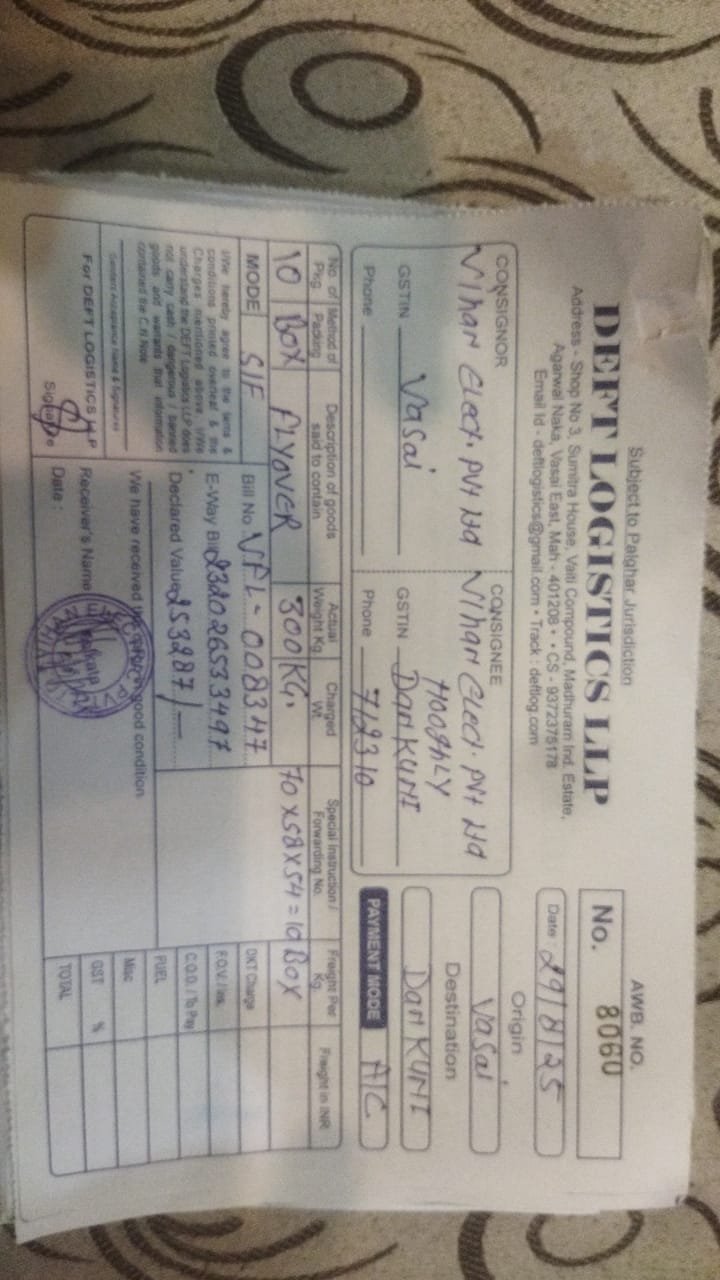 Subject to Palghar Jurisdiction
DEFT LOGISTICS LLP
Address - Shop No 3, Sumitra House, Vaiti Compound, Madhuram Ind. Estate,
Agarwal Naka, Vasai East, Mah - 401208 • • CS - 9372375178
Email Id - deftlogistics@gmail.com • Track : deftlog.com
AWB. NO.
No. 8060
Date : 29/8/25
CONSIGNOR
Nihar Elect. PVt Ltd
Vasai
GSTIN
Phone
CONSIGNEE
Nihar Elect. PVt Ltd
HOOGHLY
GSTIN DANKUNI
Phone 712310
Origin
Vasai
Destination
DANKUNI
PAYMENT MODE A/C
No. of Pkg. Method of Packing Description of goods said to contain Actual Weight Kg. Charged Wt. Special Instruction / Forwarding No. Freight Per Kg. Freight in INR
10 BOX FLYOVER 300KG. 70x58x54=10 BOX
MODE S/F
Bill No VFL-008347
E-Way Bill 232026533497
Declared Value 253287/-
DKT Charge
F.O.V / Ins.
C.O.D. / To Pay
FUEL
Misc
GST %
TOTAL
I/We hereby agree to the terms &
conditions printed overleaf & the
Charges mentioned above. I/We
understand the DEFT Logistics LLP does
not carry cash / dangerous / banned
goods and warrants that information
contained the C.N Note
Senders Acceptance Name & Signatures
For DEFT LOGISTICS LLP
Signature
We have received the good condition
Receiver's Name
Date :